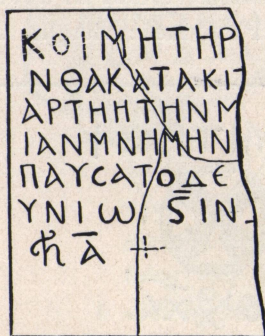 ΚΟΙΜΗΤΗΡ
ΝΘΑΚΑΤΑΚΙΤ
ΑΡΤΗΗΤΗΝΜ
ΙΑΝΜΝΗΜΗΝ
ΠΑΥCΑΤΟΔΕ
ΥΝΙω Ϛ ΙΝ
Α̅ +